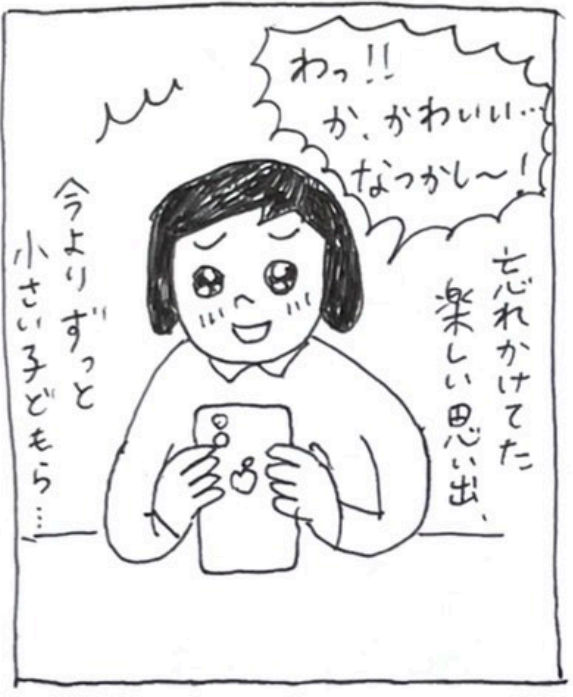 わっ!!
か、かわいい…
なつかし〜!
忘れかけてた
楽しい思い出、
今よりずっと
小さい子どもら…